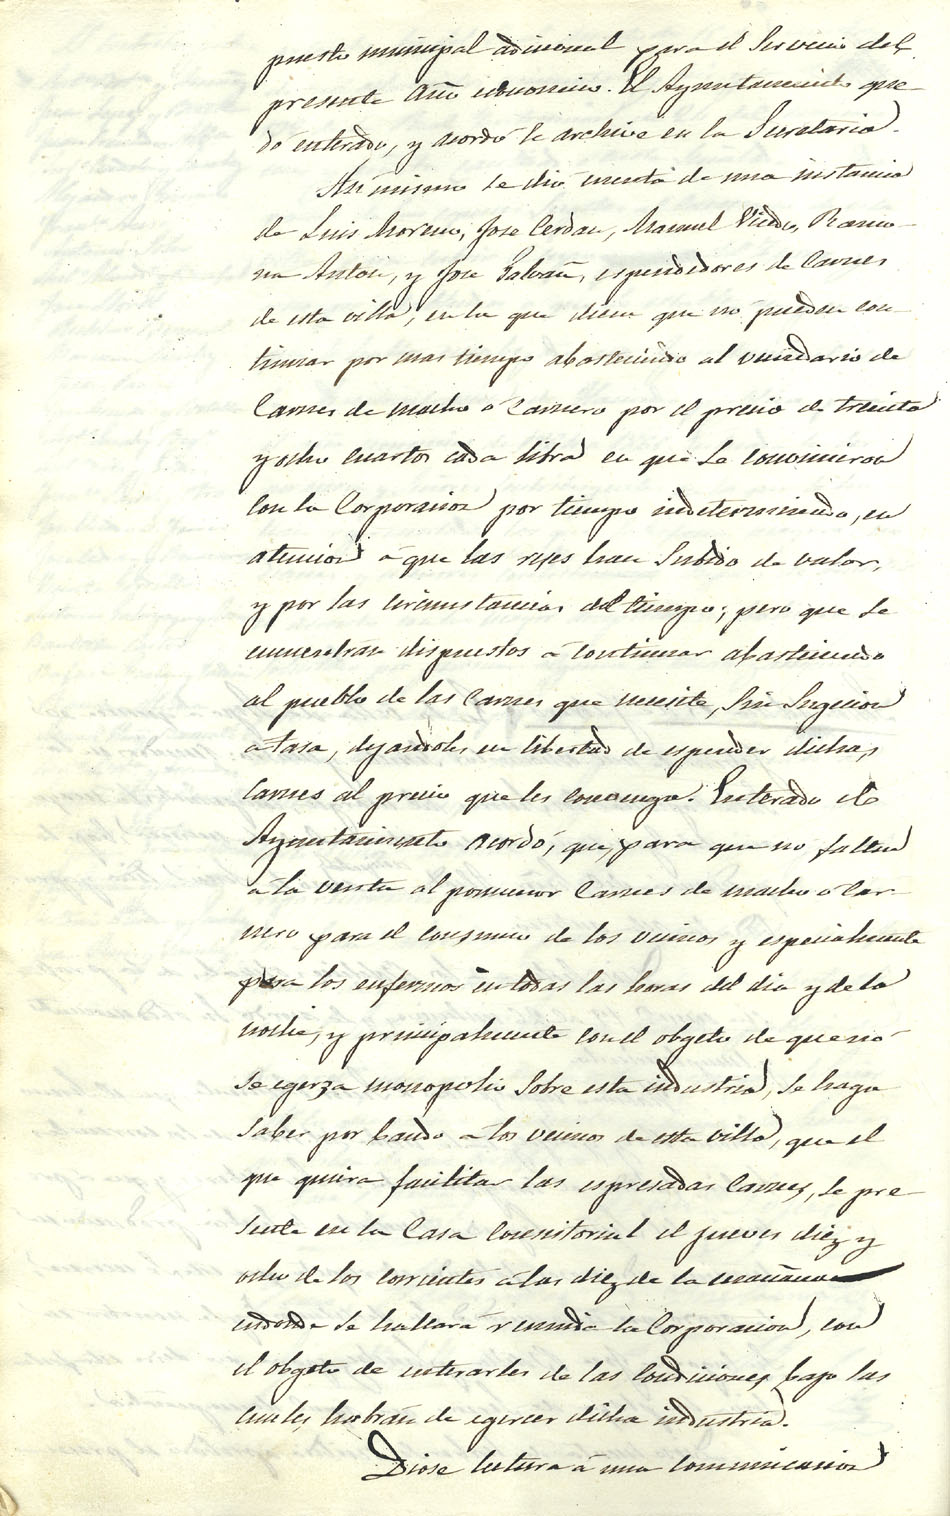 puesto municipal adicional para el Servicio del
presente Año economico. El Ayuntamiento que-
dó enterado, y acordó se archive en la Secretaria.
Asi mismo se dió cuenta de una instancia
de Luis Moreno, Jose Cerdan, Manuel Viedo, Ramo-
na Anton, y Jose Galvañ, espendedores de Carnes
de esta villa, en la que dicen que no pueden con-
tinuar por mas tiempo abasteciendo al vecindario de
Carnes de macho o Carnero por el precio de treinta
y ocho cuartos cada libra en que se convinieron
con la Corporacion por tiempo indeterminado, en
atencion á que las reses han Subido de valor,
y por las circunstancias del tiempo; pero que se
encuentran dispuestos á continuar abasteciendo
al pueblo de las Carnes que necesite, Sin Sugecion
a tasa, dejandoles en libertad de espender dichas
Carnes al precio que les convenga. Enterado el
Ayuntamiento acordó, que, para que no falten
a la venta al pormenor Carnes de macho o Car-
nero para el consumo de los vecinos y especialmente
para los enfermos en todas las horas del dia y de la
noche, y principalmente con el objeto de que no
se egerza monopolio Sobre esta industria, se haga
Saber por bando a los vecinos de esta villa, que el
que quiera facilitar las espresadas Carnes, se pre-
sente en la Casa Consistorial el jueves diez y
ocho de los corrientes á las diez de la mañana
endonde se hallará reunida la Corporacion, con
el objeto de enterarles de las condiciones bajo las
cuales habrán de egercer dicha industria.
Diose lectura á una comunicacion